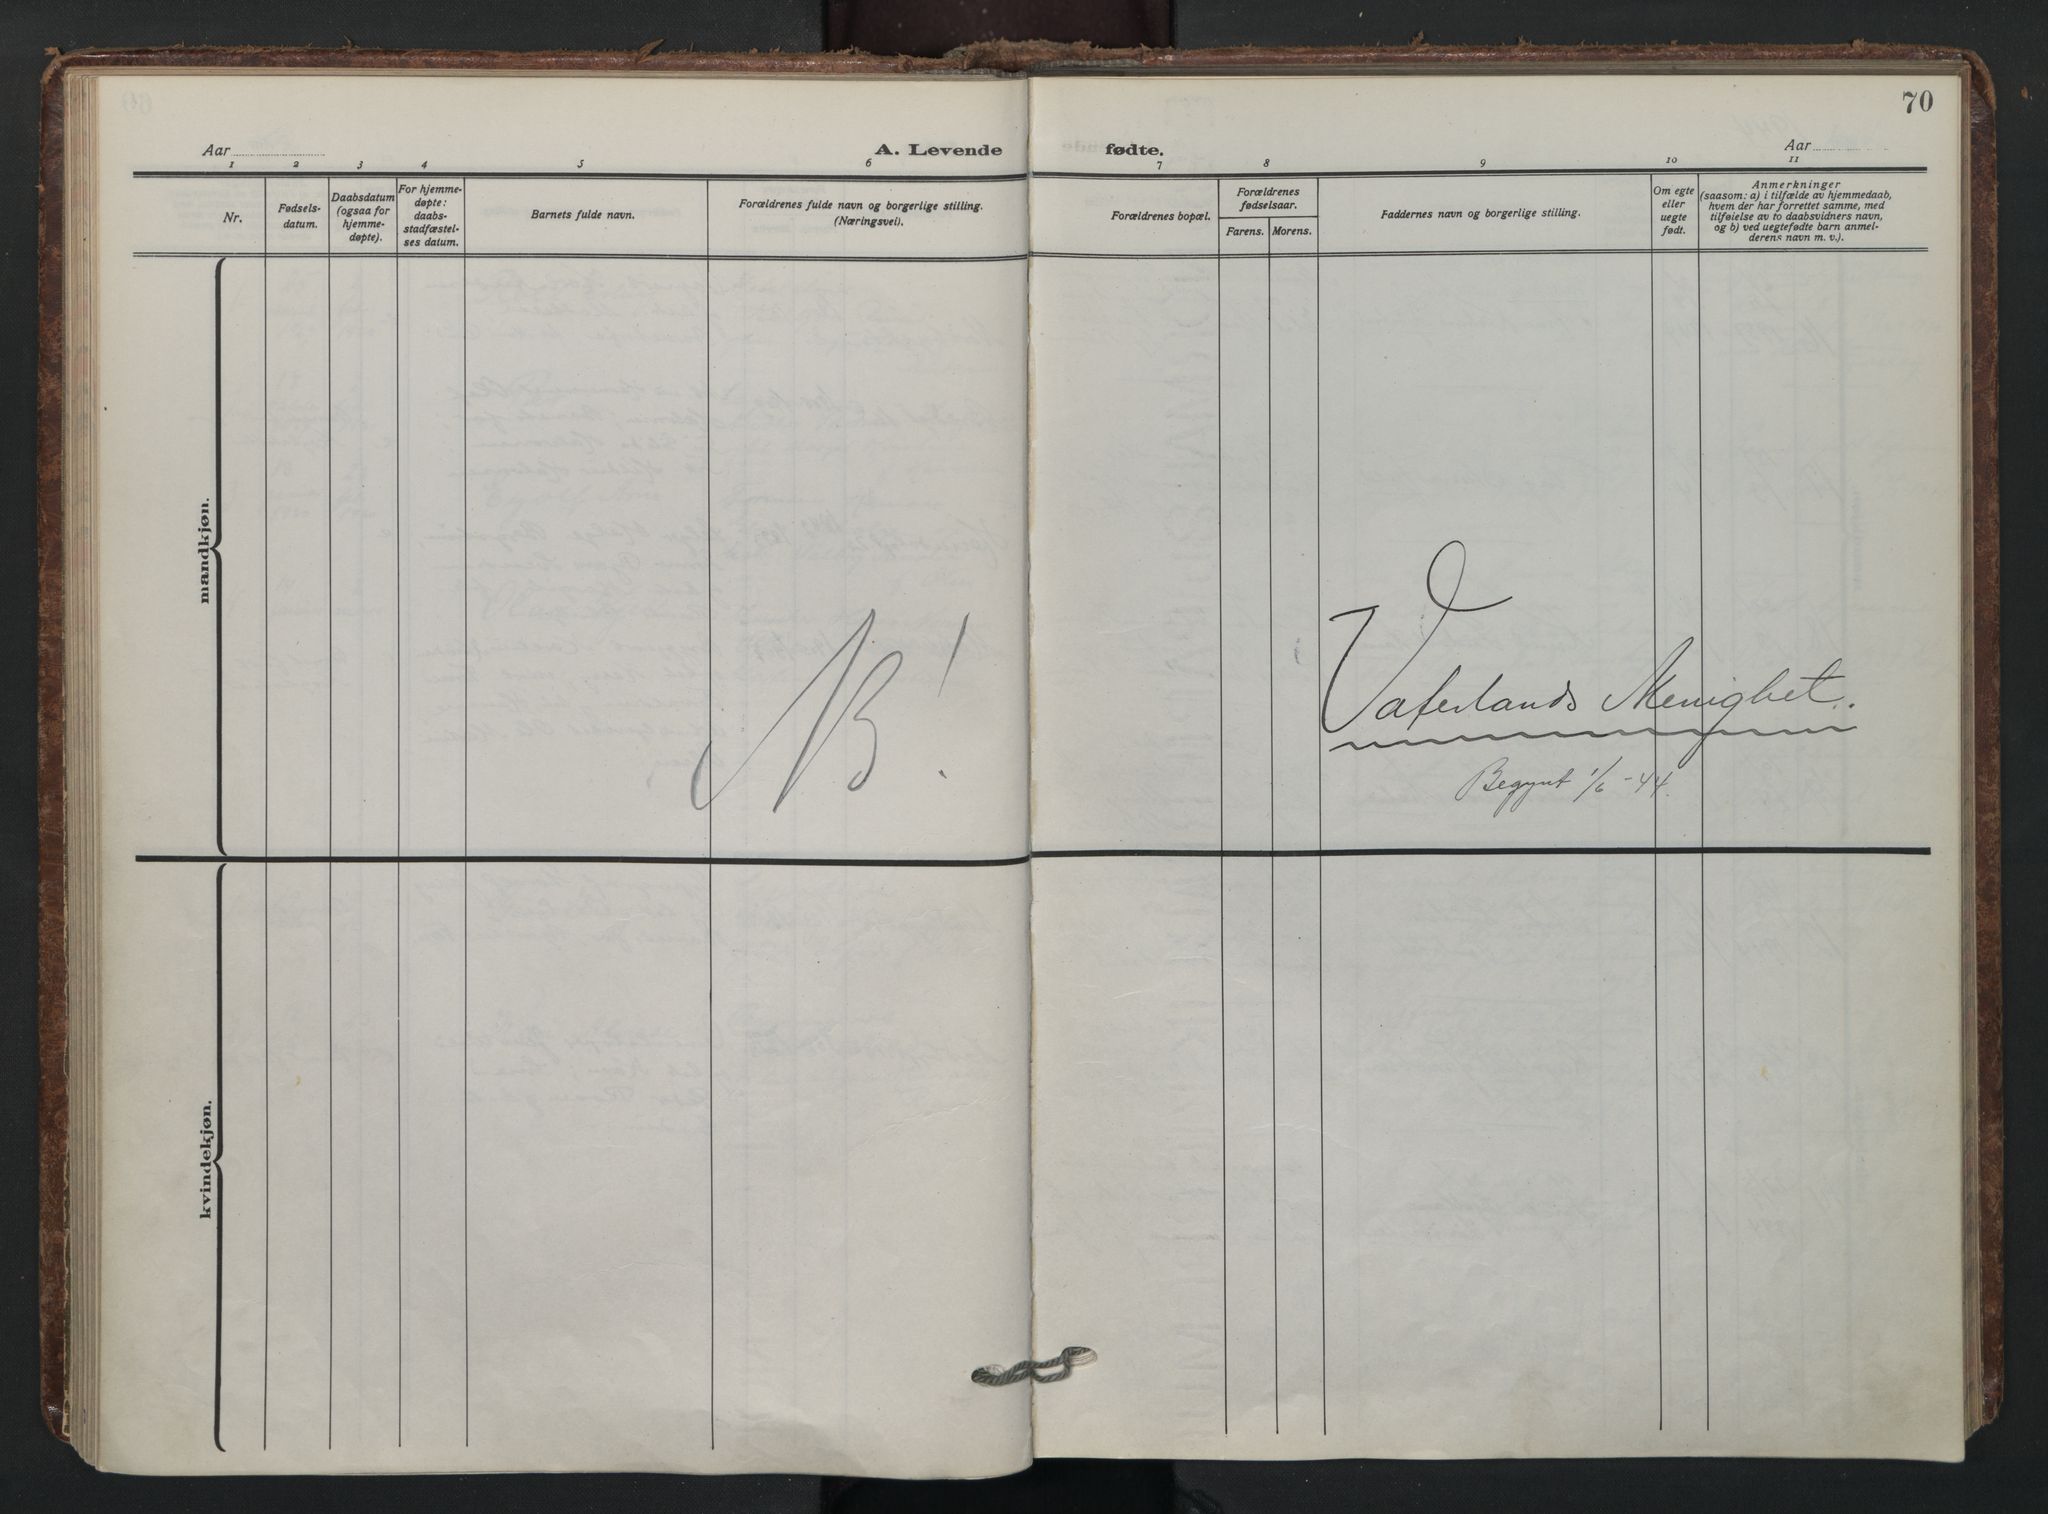 70
Aar
A. Levende fødte.
Aar
1 2 3 4 5 6 7 8 9 10 11
Nr.
Fødsels-
datum.
Daabsdatum
(ogsaa for
hjemme-
døpte).
For hjemme-
døpte:
daabs-
stadfæstel-
ses datum.
Barnets fulde navn.
Forældrenes fulde navn og borgerlige stilling.
(Næringsvei).
Forældrenes bopæl.
Forældrenes
fødselsaar.
Farens. Morens.
Faddernes navn og borgerlige stilling.
Om egte
eller
uegte
født.
Anmerkninger
(saasom: a) i tilfælde av hjemmedaab,
hvem der har forrettet samme, med
tilføielse av to daabsvidners navn,
og b) ved uegtefødte barn anmel-
derens navn m. v.).
mandkjøn.
NB!
Vaterlands Menighet.
Begynt 1/6 -44.
kvindekjøn.